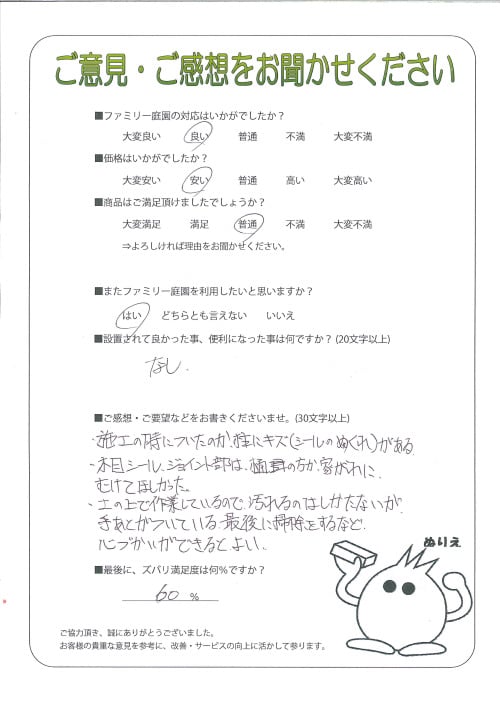 ご意見・ご感想をお聞かせください
■ファミリー庭園の対応はいかがでしたか？
大変良い 良い 普通 不満 大変不満
■価格はいかがでしたか？
大変安い 安い 普通 高い 大変高い
■商品はご満足頂けましたでしょうか？
大変満足 満足 普通 不満 大変不満
⇒よろしければ理由をお聞かせください。
■またファミリー庭園を利用したいと思いますか？
はい どちらとも言えない いいえ
■設置されて良かった事、便利になった事は何ですか？(20文字以上)
なし.
■ご感想・ご要望などをお書きくださいませ。(30文字以上)
・施工の時についたのか、柱にキズ(シールのめくれ)がある
・木目シール、ジョイント部は、の方か、家がわに、
むけてほしかった。
・土の上で作業しているので、汚れるのはしかたないが
手あとがついている。最後に掃除をするなど、
心づかいができるとよい、
ぬりえ
■最後に、ズバリ満足度は何％ですか？
60 %
ご協力頂き、誠にありがとうございました。
お客様の貴重な意見を参考に、改善・サービスの向上に活かして参ります。